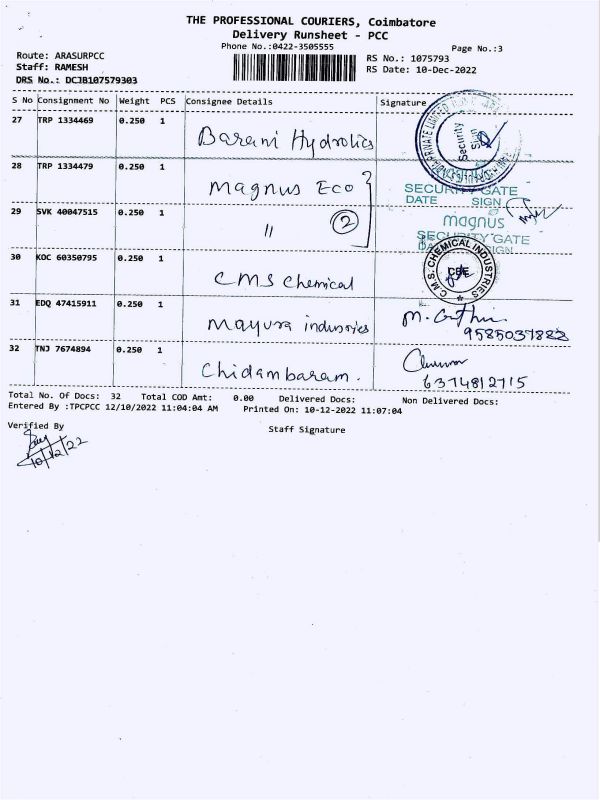 THE PROFESSIONAL COURIERS, Coimbatore
Delivery Runsheet - PCC
Phone No.:0422-3505555
Page No.:3
Route: ARASURPCC
Staff: RAMESH
DRS No.: DCJB107579303
RS No.: 1075793
RS Date: 10-Dec-2022
S No Consignment No Weight PCS Consignee Details Signature
27 TRP 1334469 0.250 1 Barani Hydrolics
PRIVATE LIMITED
Security
Sign
28 TRP 1334479 0.250 1 Magnus Eco
SECURITY GATE
DATE SIGN
29 SVK 40047515 0.250 1 〃 2
magnus
SECURITY GATE
SIGN
30 KOC 60350795 0.250 1 CMS Chemical
C.M.S. CHEMICAL INDUSTRIES
CBE
31 EDQ 47415911 0.250 1 Mayura industries
9585037888
32 TNJ 7674894 0.250 1 Chidambaram.
6374812715
Total No. Of Docs: 32 Total COD Amt: 0.00 Delivered Docs: Non Delivered Docs:
Entered By :TPCPCC 12/10/2022 11:04:04 AM Printed On: 10-12-2022 11:07:04
Verified By
Staff Signature
10/12/22